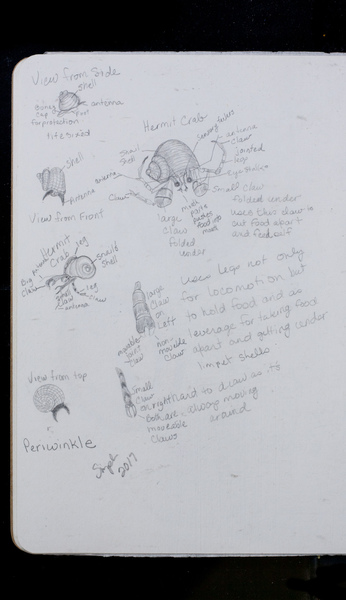 View from Side
shell
antenna
for protection
shell
antenna
View from Front
Hermit Crab
antenna
claw
jointed
legs
eye stalks
Snail
Shell
antenna
claw
large
claw
folded
under
mouth
Small claw
folded under
uses this claw to
cut food apart
and feed self
Hermit
Crab
leg
Shell
Big
Claw
leg
Small
Claw
claw
antenna
large
claw
on
left
non
movable
claw
joint
claw
uses legs not only
for locomotion but
to hold food and as
leverage for taking food
apart and getting under
limpet shells
View from top
Periwinkle
small
claw
on right
both are
moveable
claws
Hard to draw as it's
always moving
around
2017